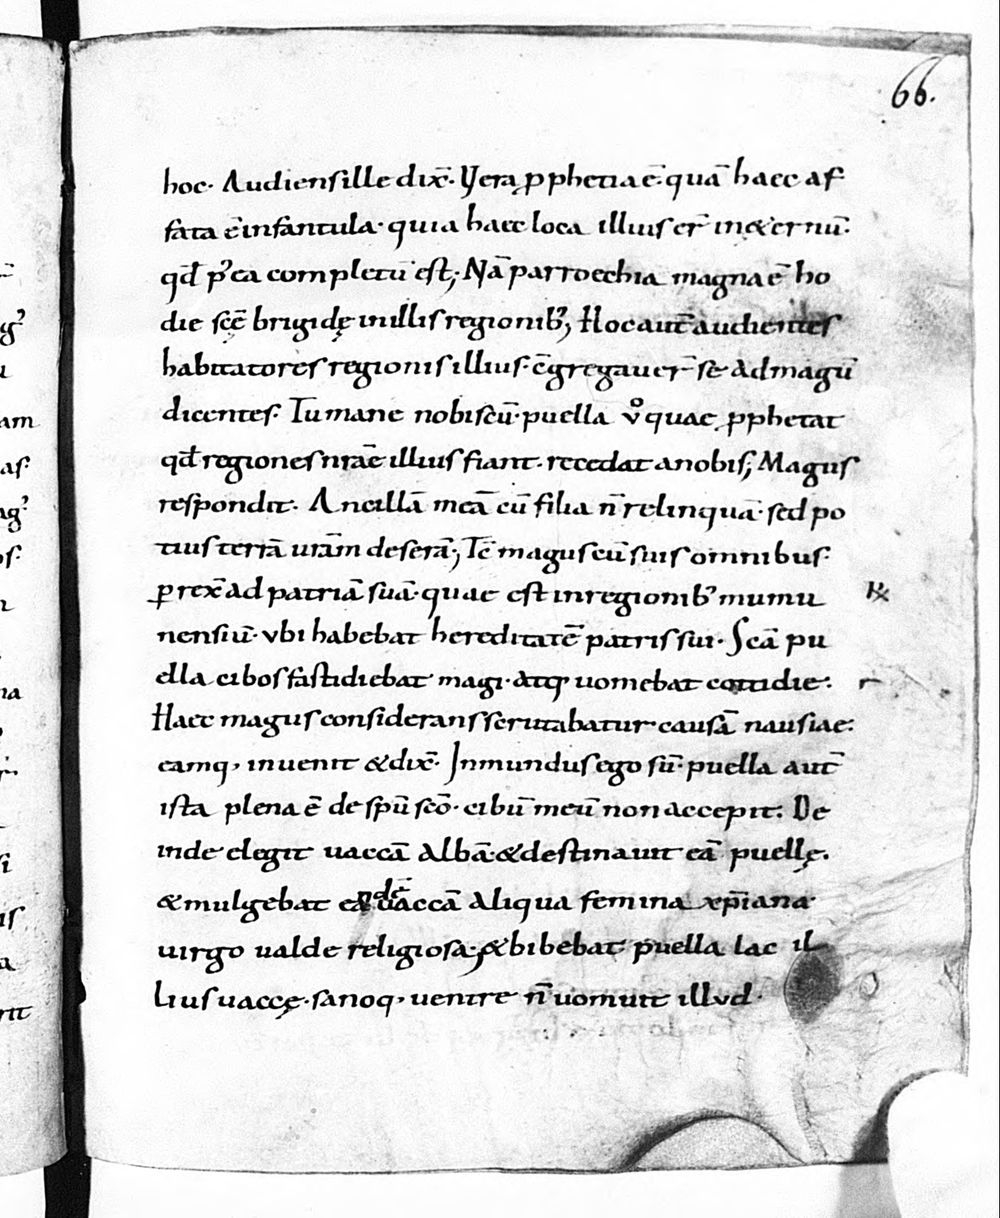 66.
hoc· Audiensille dix̄· Vera ꝓphetia ē· quā haec af
fata ē infantula· quia haec loca illius er̄ in&ernū·
qđ p᷒ea completū est; Nā parroechia magna ē ho
die sc̄ę brigidę inillis regionib᷒; Hoc aut̄ audientes
habitatores regionis illius· c̄gregauer̄ se admagū
dicentes· Tu mane nobiscū· puella v̊ quae ꝓphetat
qđ regiones nr̄ae illius fiant· recedat anobis; Magus
respondit· Ancillā meā cū filia n̄ relinquā· sed po
tius terrā urām deserā; Tc̄ magus cū suis omnibus·
ꝑrex̄ ad patriā suā· quae est inregionib᷒ mumu
nensiū· vbi habebat hereditatē patris sui· Sc̄a pu
ella cibos fastidiebat magi· atq; uomebat cottidie·
Haec magus considerans scrutabatur causā nausiae·
eamq; inuenit &dix̄· Inmundus ego sū· puella aut̄
ista plena ē de spū sc̄o· cibū meū non accepit· De
inde elegit uaccā albā· &destinauit eā puellę·
&mulgebat eandē uaccā aliqua femina xp̄iana·
uirgo ualde religiosa; &bibebat puella lac il
lius uaccę· sanoq; uentre n̄ uomuit illvd·